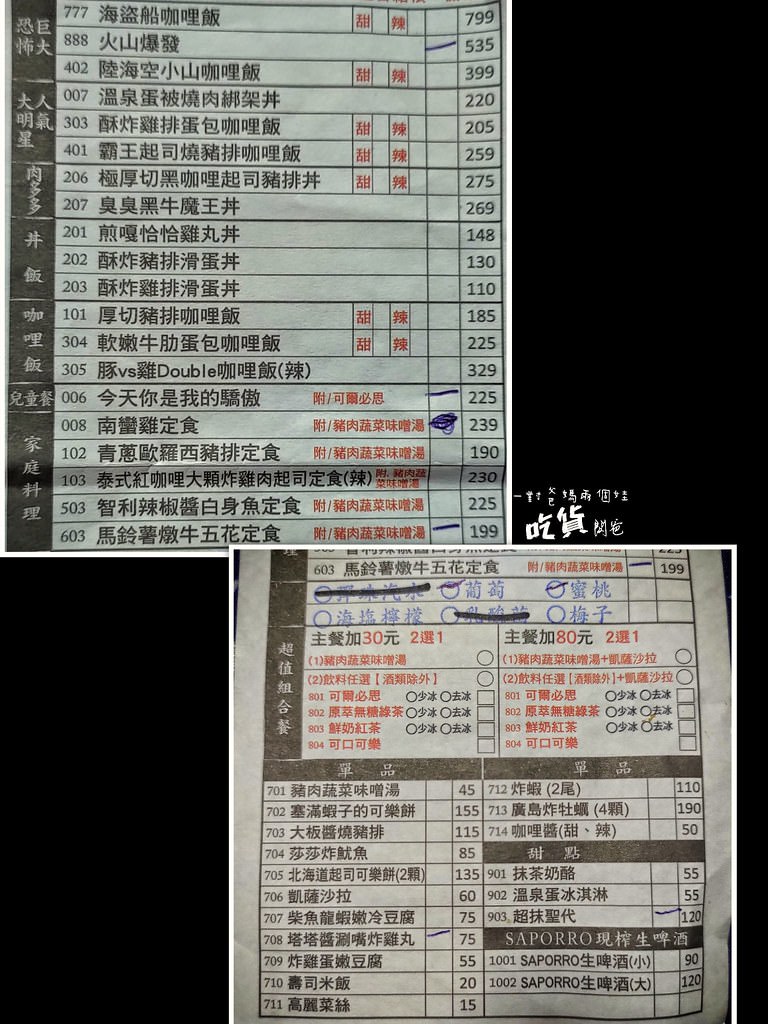 恐怖巨大
777 海盜船咖哩飯 甜 辣 799
888 火山爆發 535
402 陸海空小山咖哩飯 甜 辣 399
人氣大明星
007 溫泉蛋被燒肉綁架丼 220
303 酥炸雞排蛋包咖哩飯 甜 辣 205
401 霸王起司燒豬排咖哩飯 甜 辣 259
肉多多
206 極厚切黑咖哩起司豬排丼 甜 辣 275
207 臭臭黑牛魔王丼 269
丼飯
201 煎嘎恰恰雞丸丼 148
202 酥炸豬排滑蛋丼 130
203 酥炸雞排滑蛋丼 110
咖哩飯
101 厚切豬排咖哩飯 甜 辣 185
304 軟嫩牛肋蛋包咖哩飯 甜 辣 225
305 豚vs雞Double咖哩飯(辣) 329
兒童餐
006 今天你是我的驕傲 附/可爾必思 225
家庭料理
008 南蠻雞定食 附/豬肉蔬菜味噌湯 239
102 青蔥歐羅西豬排定食 附/豬肉蔬菜味噌湯 190
103 泰式紅咖哩大顆炸雞肉起司定食(辣) 附/豬肉蔬菜味噌湯 230
503 智利辣椒醬白身魚定食 附/豬肉蔬菜味噌湯 225
603 馬鈴薯燉牛五花定食 附/豬肉蔬菜味噌湯 199
一對爸媽兩個娃
吃貨 闆爸
理
503 智利辣椒醬白身魚定食 225
603 馬鈴薯燉牛五花定食 附/豬肉蔬菜味噌湯 199
彈珠汽水 葡萄 蜜桃
海塩檸檬 乳酸菌 梅子
超值組合餐
主餐加30元 2選1
(1)豬肉蔬菜味噌湯
(2)飲料任選【酒類除外】
801 可爾必思 少冰 去冰
802 原萃無糖綠茶 少冰 去冰
803 鮮奶紅茶 少冰 去冰
804 可口可樂
主餐加80元 2選1
(1)豬肉蔬菜味噌湯+凱薩沙拉
(2)飲料任選【酒類除外】+凱薩沙拉
801 可爾必思 少冰 去冰
802 原萃無糖綠茶 少冰 去冰
803 鮮奶紅茶 少冰 去冰
804 可口可樂
單品
701 豬肉蔬菜味噌湯 45
702 塞滿蝦子的可樂餅 155
703 大板醬燒豬排 115
704 莎莎炸魷魚 85
705 北海道起司可樂餅(2顆) 135
706 凱薩沙拉 60
707 柴魚龍蝦嫩冷豆腐 75
708 塔塔醬涮嘴炸雞丸 75
709 炸雞蛋嫩豆腐 55
710 壽司米飯 20
711 高麗菜絲 15
單品
712 炸蝦 (2尾) 110
713 廣島炸牡蠣 (4顆) 190
714 咖哩醬(甜、辣) 50
甜點
901 抹茶奶酪 55
902 溫泉蛋冰淇淋 55
903 超抹聖代 120
SAPORRO現榨生啤酒
1001 SAPORRO生啤酒(小) 90
1002 SAPORRO生啤酒(大) 120